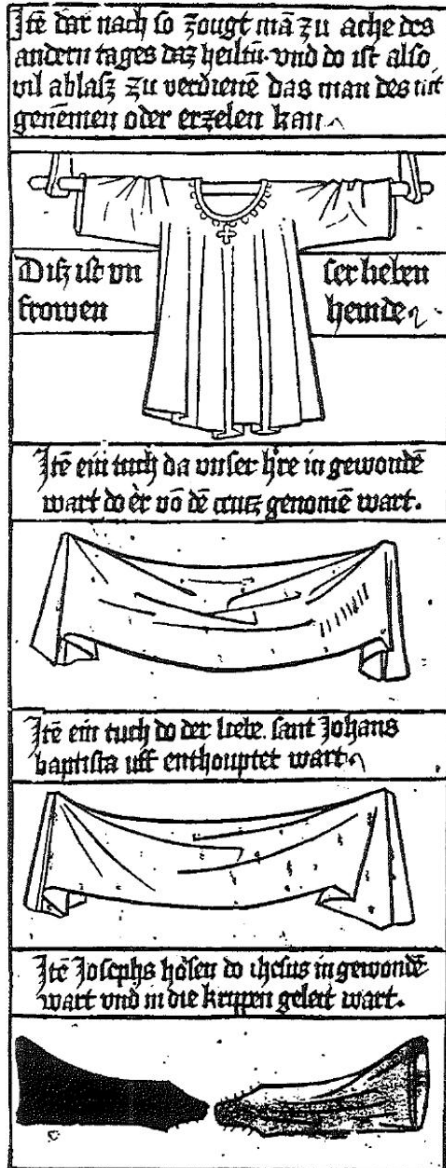 Jtē dar nach so zougt mā zu ache des
andern tages daz heiltū. vnd do ist also
vil ablasz zu verdienē das man des nit
genēmen oder erzelen kan
Disz ist vn ser lieben
frowen hemde
Jtē ein tuch da vnser hre in gewondē
wart do er vō dē crutz genomē wart.
Jtē ein tuch do der liebe. sant Johans
baptista uff enthouptet wart
Jtē Josephs hosen do ihesus in gewondē
wart vnd in die krippen geleit wart.